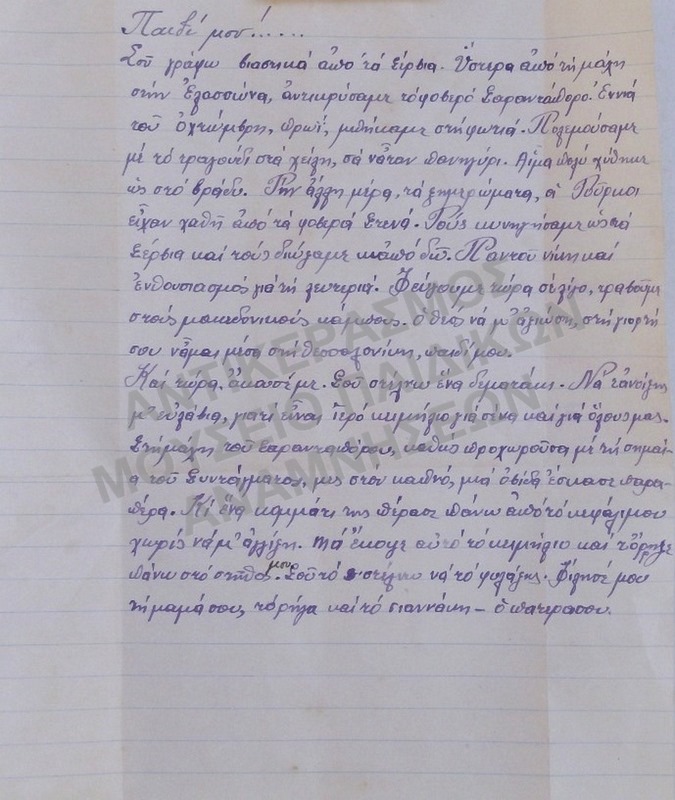 Παιδί μου!.....
Σοῦ γράφω βιαστικά ἀπό τά Σέρβια. Ὕστερα ἀπό τή μάχη
στήν Ἐλασσῶνα, ἀντικρύσαμε τό φοβερό Σαραντάπορο. Ἐννιά
τοῦ Ὀχτώμβρη, πρωΐ, μπήκαμε στή φωτιά. Πολεμούσαμε
μέ τό τραγούδι στά χείλη, σά νἆταν πανηγύρι. Αἷμα πολύ χύθηκε
ὥς στό βράδυ. Τήν ἄλλη μέρα, τά ξημερώματα, οἱ Τοῦρκοι
εἶχαν χαθῆ ἀπό τά φοβερά Στενά. Τούς κυνηγήσαμε ὥς τά
Σέρβια καί τούς διώξαμε κι ἀπό δῶ. Παντοῦ νίκη καί
ἐνθουσιασμός γιά τή λευτεριά. Φεύγουμε τώρα σέ λίγο, τραβοῦμε
στούς μακεδονικούς κάμπους. Ὁ θεός νά μ' ἀξιώση, στή γιορτή
σου νἆμαι μέσα στή Θεσσαλονίκη, παιδί μου.
Καί τώρα, ἄκουσέ με. Σοῦ στέλνω ἕνα δεματάκι. Νά τ' ἀνοίξης
μ' εὐλάβια, γιατί εἶναι ἱερό κειμήλιο γιά σένα καί γιά ὅλους μας.
Στή μάχη τοῦ Σαρανταπόρου, καθώς προχωροῦσα μέ τή σημαί-
α τοῦ Συντάγματος, μές στόν καπνό, μιά ὀβίδα ἔσκασε παρα-
πέρα. Κι ἕνα κομμάτι της πέρασε πάνω ἀπό τό κεφάλι μου
χωρίς νά μ' ἀγγίξη. Μά ἔκοψε αὐτό τό κειμήλιο καί τὄρριξε
πάνω στό στῆθος μου. Σοῦ τό στέλνω νά τό φυλάξης. Φίλησέ μου
τή μαμά σου, τό Ρήγα καί τό Γιαννάκη – ὁ πατέρας σου.
ΑΝΤΙΚΕΡΑΣΜΟΣ
ΜΟΥΣΕΙΟ ΠΑΙΔΙΚΩΝ
ΑΝΑΜΝΗΣΕΩΝ